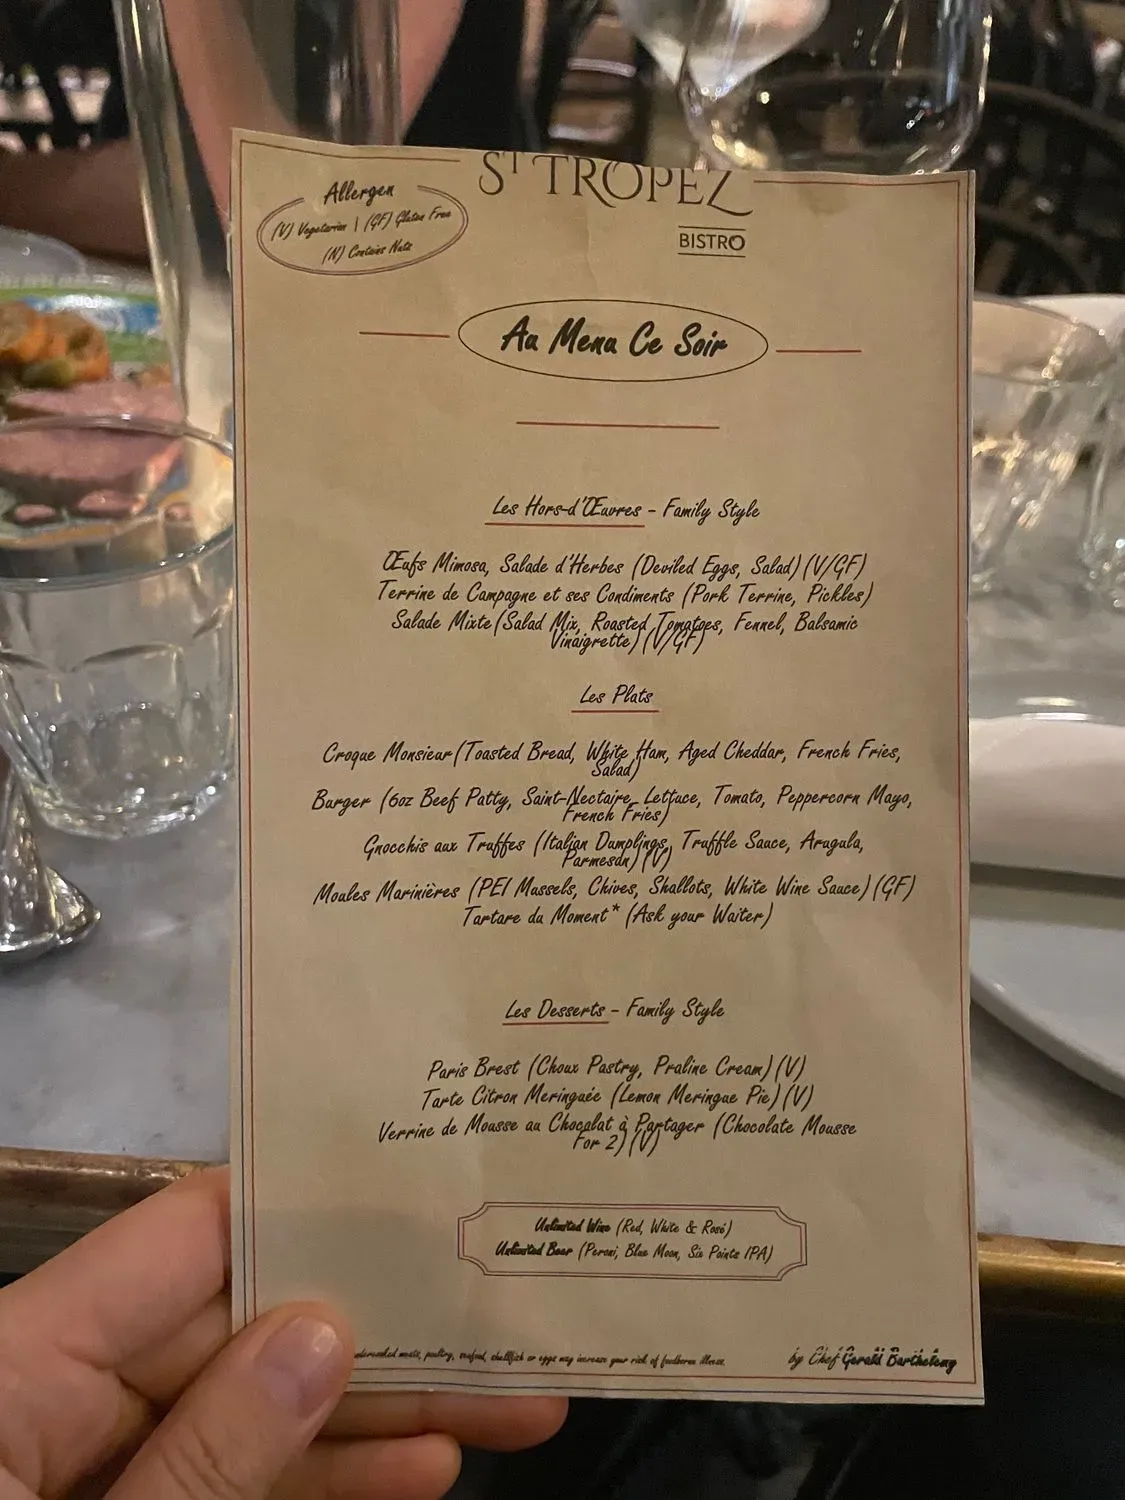 Allergen
(V) Vegetarian | (GF) Gluten Free
(N) Contains Nuts
ST TROPEZ
BISTRO
Au Menu Ce Soir
Les Hors-d'Œuvres - Family Style
Œufs Mimosa, Salade d'Herbes (Deviled Eggs, Salad) (V/GF)
Terrine de Campagne et ses Condiments (Pork Terrine, Pickles)
Salade Mixte (Salad Mix, Roasted Tomatoes, Fennel, Balsamic
Vinaigrette) (V/GF)
Les Plats
Croque Monsieur (Toasted Bread, White Ham, Aged Cheddar, French Fries,
Salad)
Burger (6oz Beef Patty, Saint-Nectaire, Lettuce, Tomato, Peppercorn Mayo,
French Fries)
Gnocchis aux Truffes (Italian Dumplings, Truffle Sauce, Arugula,
Parmesan) (V)
Moules Marinières (PEI Mussels, Chives, Shallots, White Wine Sauce) (GF)
Tartare du Moment* (Ask your Waiter)
Les Desserts - Family Style
Paris Brest (Choux Pastry, Praline Cream) (V)
Tarte Citron Meringuée (Lemon Meringue Pie) (V)
Verrine de Mousse au Chocolat à Partager (Chocolate Mousse
For 2) (V)
Unlimited Wine (Red, White & Rosé)
Unlimited Beer (Peroni, Blue Moon, Six Points IPA)
meats, poultry, seafood, shellfish or eggs may increase your risk of foodborne illness.
by Chef Gerald Barthelemy